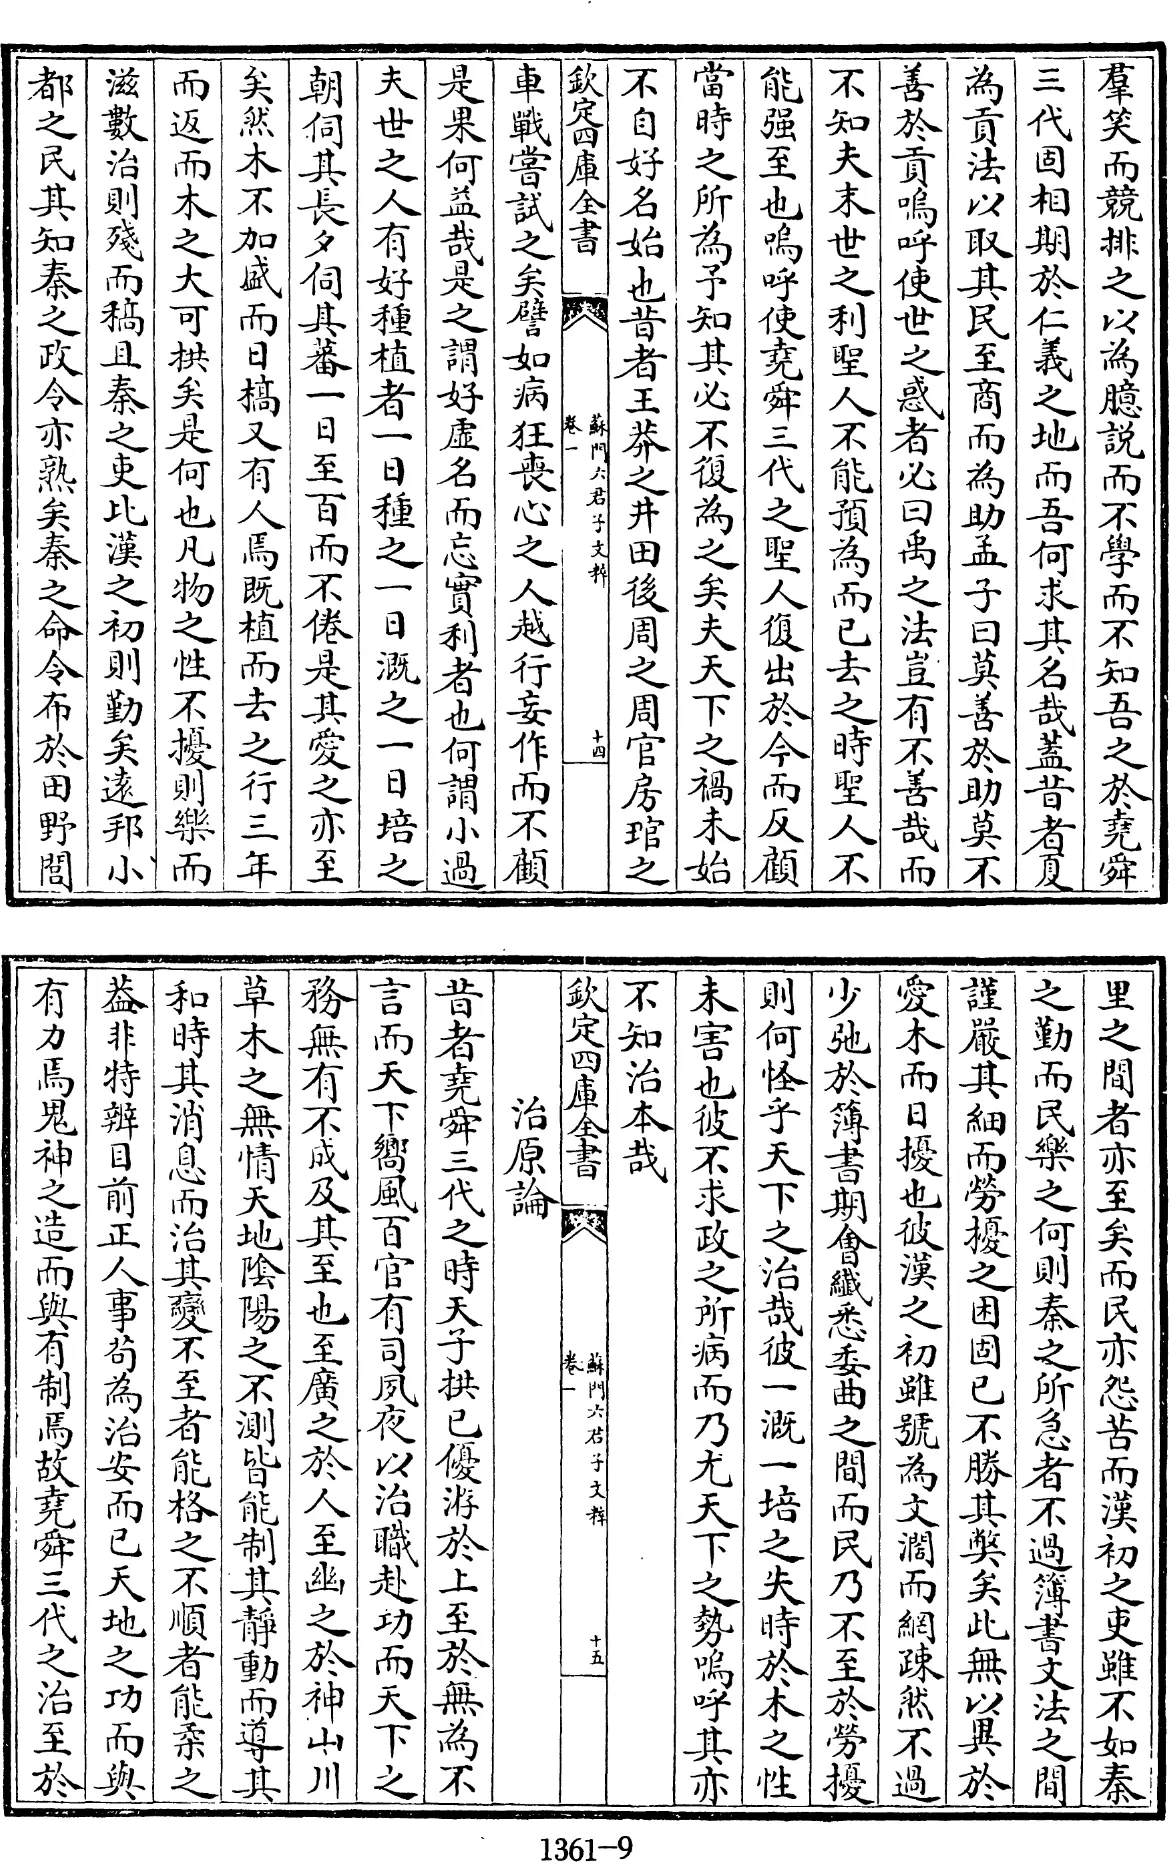 羣笑而競排之以為臆説而不學而不知吾之於堯舜
三代固相期於仁義之地而吾何求其名哉蓋昔者夏
為貢法以取其民至商而為助孟子曰莫善於助莫不
善於貢嗚呼使世之惑者必曰禹之法豈有不善哉而
不知夫末世之利聖人不能預為而已去之時聖人不
能强至也嗚呼使堯舜三代之聖人復出於今而反顧
當時之所為予知其必不復為之矣夫天下之禍未始
不自好名始也昔者王莽之井田後周之周官房琯之
欽定四庫全書
蘇門六君子文粹
卷一
十四
車戰嘗試之矣譬如病狂喪心之人越行妄作而不顧
是果何益哉是之謂好虛名而忘實利者也何謂小過
夫世之人有好種植者一日種之一日溉之一日培之
朝伺其長夕伺其蕃一日至百而不倦是其愛之亦至
矣然木不加盛而日槁又有人焉既植而去之行三年
而返而木之大可拱矣是何也凡物之性不擾則樂而
滋數治則殘而稿且秦之吏比漢之初則勤矣遠邦小
都之民其知秦之政令亦熟矣秦之命令布於田野閭
里之間者亦至矣而民亦怨苦而漢初之吏雖不如秦
之勤而民樂之何則秦之所急者不過簿書文法之間
謹嚴其細而勞擾之困固已不勝其弊矣此無以異於
愛木而日擾也彼漢之初雖號為文濶而網疎然不過
少弛於簿書期會纖悉委曲之間而民乃不至於勞擾
則何怪乎天下之治哉彼一溉一培之失時於木之性
未害也彼不求政之所病而乃尤天下之勢嗚呼其亦
不知治本哉
欽定四庫全書
蘇門六君子文粹
卷一
十五
治原論
昔者堯舜三代之時天子拱已優游於上至於無為不
言而天下嚮風百官有司夙夜以治職赴功而天下之
務無有不成及其至也至廣之於人至幽之於神山川
草木之無情天地陰陽之不測皆能制其靜動而導其
和時其消息而治其變不至者能格之不順者能柔之
葢非特辨目前正人事苟為治安而已天地之功而與
有力焉鬼神之造而與有制焉故堯舜三代之治至於
1361-9